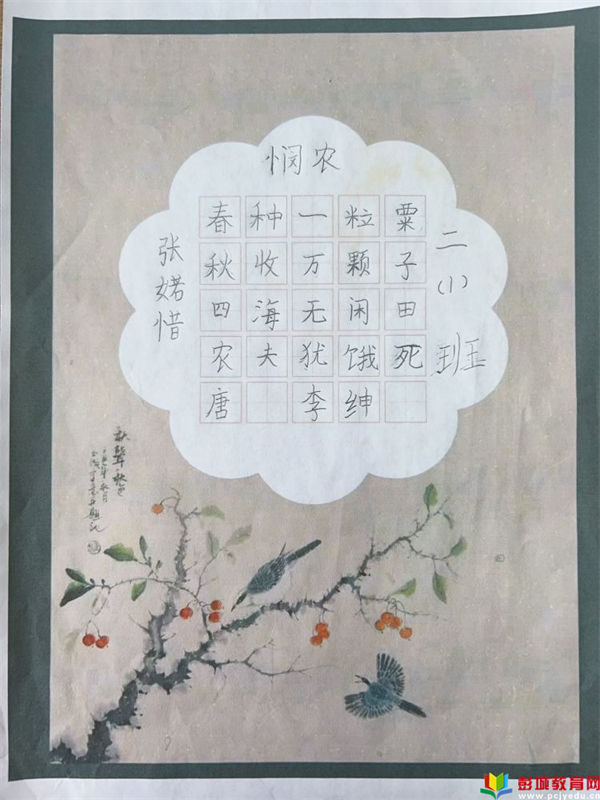 悯农
春种一粒粟
秋收万颗子
四海无闲田
农夫犹饿死
唐 李绅
二(1)班
张婼惜
秋声秋色
彭城教育网
www.pcjyedu.cn